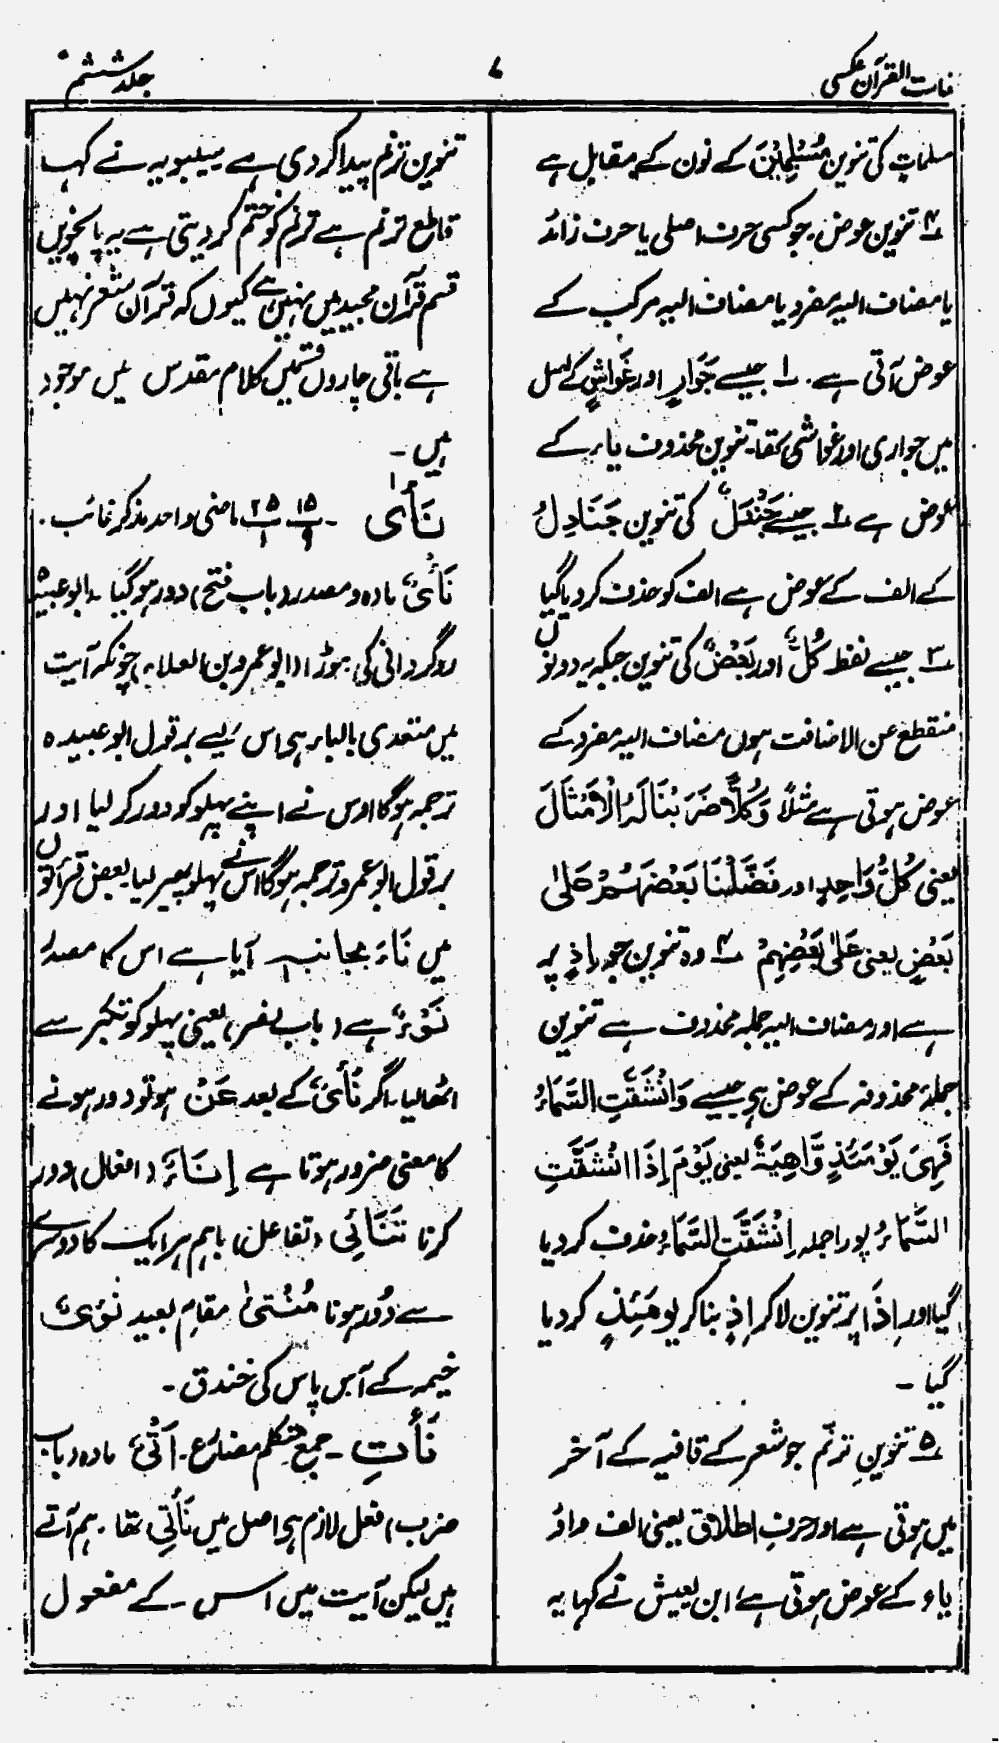 لغات القرآن عکسی
۷
جلد ششم
مسلماتٍ کی تنوین مُسْلِمِیْنَ کے نون کے مقابل ہے
۴ تنوین عوض۔ جو کسی حرف اصلی یا حرف زائد
یا مضاف الیہ مفرد یا مضاف الیہ مرکب کے
عوض آتی ہے۔ ۱ جیسے جَوَارٍ اور غَوَاشٍ کے اصل
میں جواری اور غواشی تھا۔ تنوین محذوف یاء کے
عوض ہے ۲ جیسے جَنْدَلٌ کی تنوین جَنَادِلُ
کے الف کے عوض ہے الف کو حذف کر دیا گیا
۳ جیسے لفظ کُلٌّ اور بَعْضٌ کی تنوین جبکہ یہ دونوں
منقطع عن الاضافت ہوں مضاف الیہ مفرد کے
عوض ہوتی ہے مثلاً وَکُلًّا ضَرَبْنَا لَہُ الْاَمْثَالَ
یعنی کُلَّ وَاحِدٍ اور فَضَّلْنَا بَعْضَہُمْ عَلیٰ
بَعْضٍ یعنی عَلیٰ بَعْضِہِمْ ۴ وہ تنوین جو اِذٍ پر
ہے اور مضاف الیہ جملہ محذوف ہے تنوین
جملۂ محذوفہ کے عوض ہے جیسے وَانْشَقَّتِ السَّمَاءُ
فَہِیَ یَوْمَئِذٍ وَّاھِیَۃٌ یعنی یَوْمَ اِذَا انْشَقَّتِ
السَّمَاءُ پورا جملہ اِنْشَقَّتِ السَّمَاءُ حذف کر دیا
گیا اور اِذَا پر تنوین لا کر اِذٍ بنا کر یَوْمَئِذٍ کر دیا
گیا ۔
۵ تنوینِ ترنّم جو شعر کے قافیہ کے آخر
میں ہوتی ہے اور حرفِ اطلاق یعنی الف واؤ
یاء کے عوض ہوتی ہے، ابن یعیش نے کہا یہ
تنوین ترنم پیدا کر دی ہے سیبویہ نے کہا یہ
قاطع ترنم ہے ترنم کو ختم کر دیتی ہے یہ پانچویں
قسم قرآن مجید میں نہیں ہے کیوں کہ قرآن شعر نہیں
ہے باقی چاروں قسمیں کلام مقدس میں موجود
ہیں ۔
نَأٰی ۔ ۱۵/۹ ۲۵/۱ ماضی واحد مذکر غائب ۔
نَأْیٌ مادہ و مصدر (باب فتح) دور ہو گیا ۔ ابو عبیدہ
روگردانی کی موڑا (ابو عمرو بن العلاء) چونکہ آیت
میں متعدی بالباء ہی اس لیے بر قول ابو عبیدہ
ترجمہ ہوگا اوس نے اپنے پہلو کو دور کر لیا اور
بر قول ابو عمرو ترجمہ ہوگا اس نے پہلو پھیر لیا بعض قرأتوں
میں نَاءَ بجانبہٖ آیا ہے اس کا مصدر
نَوْءٌ ہے (باب نصر) یعنی پہلو کو تکبر سے
اٹھا لیا۔ اگر نَأْیٌ کے بعد عَنْ ہو تو دور ہونے
کا معنی ضرور ہوتا ہے اِنَاءَۃٌ (افعال) دور
کرنا تَنَائِی (تفاعل) باہم ہر ایک کا دوسرے
سے دُور ہونا مُنْتَئیٰ مقامِ بعید نُؤْیٌ
خیمہ کے آس پاس کی خندق ۔
نَأْتِ ۔ جمع متکلم مضارع ۔ اَتْیٌ مادہ (باب
ضرب) فعل لازم ہی اصل میں نَأْتِی تھا ۔ ہم آتے
ہیں لیکن آیت میں اس ۔ کے مفعول